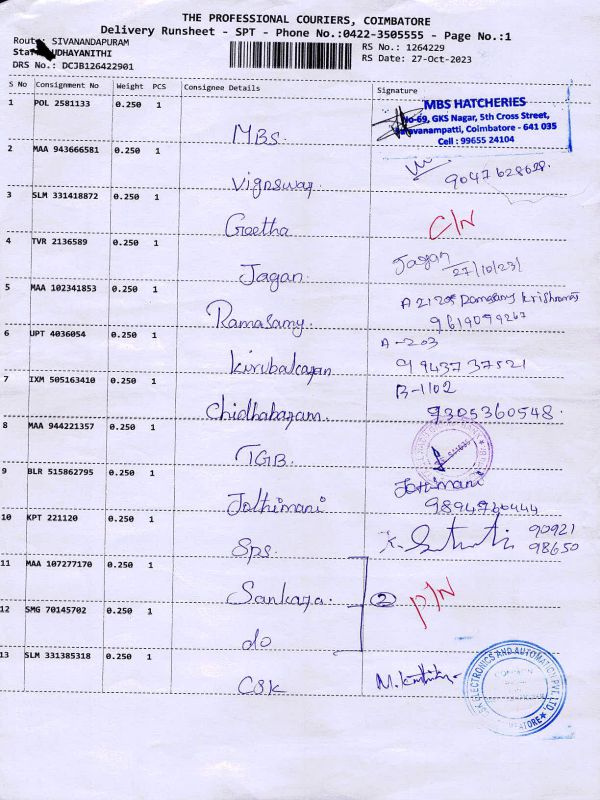 THE PROFESSIONAL COURIERS, COIMBATORE
Delivery Runsheet - SPT - Phone No.:0422-3505555 - Page No.:1
Route: SIVANANDAPURAM
RS No.: 1264229
UDHAYANITHI
RS Date: 27-Oct-2023
DRS No.: DCJB126422901
S No Consignment No Weight PCS Consignee Details Signature
1 POL 2581133 0.250 1 MBS
MBS HATCHERIES
No-69, GKS Nagar, 5th Cross Street,
Saravanampatti, Coimbatore - 641 035
Cell : 99655 24104
2 MAA 943666581 0.250 1 Vignswar 9047628628.
3 SLM 331418872 0.250 1 Geetha C/N
4 TVR 2136589 0.250 1 Jagan Jagan 27/10/23
5 MAA 102341853 0.250 1 Ramasamy.
6 UPT 4036054 0.250 1 Kirubakaran A-203
9943737521
7 IXM 505163410 0.250 1 Chidhabaram B-1102
9305360548.
8 MAA 944221357 0.250 1 TGB.
9 BLR 515862795 0.250 1 Jothimani Jothimani
9894760444
10 KPT 221120 0.250 1 Sps 90921
98650
11 MAA 107277170 0.250 1 Sankara. 2 P/N
12 SMG 70145702 0.250 1 do
13 SLM 331385318 0.250 1 CSK
ELECTRONICS AND AUTOMATION PVT. LTD.
COIMBATORE